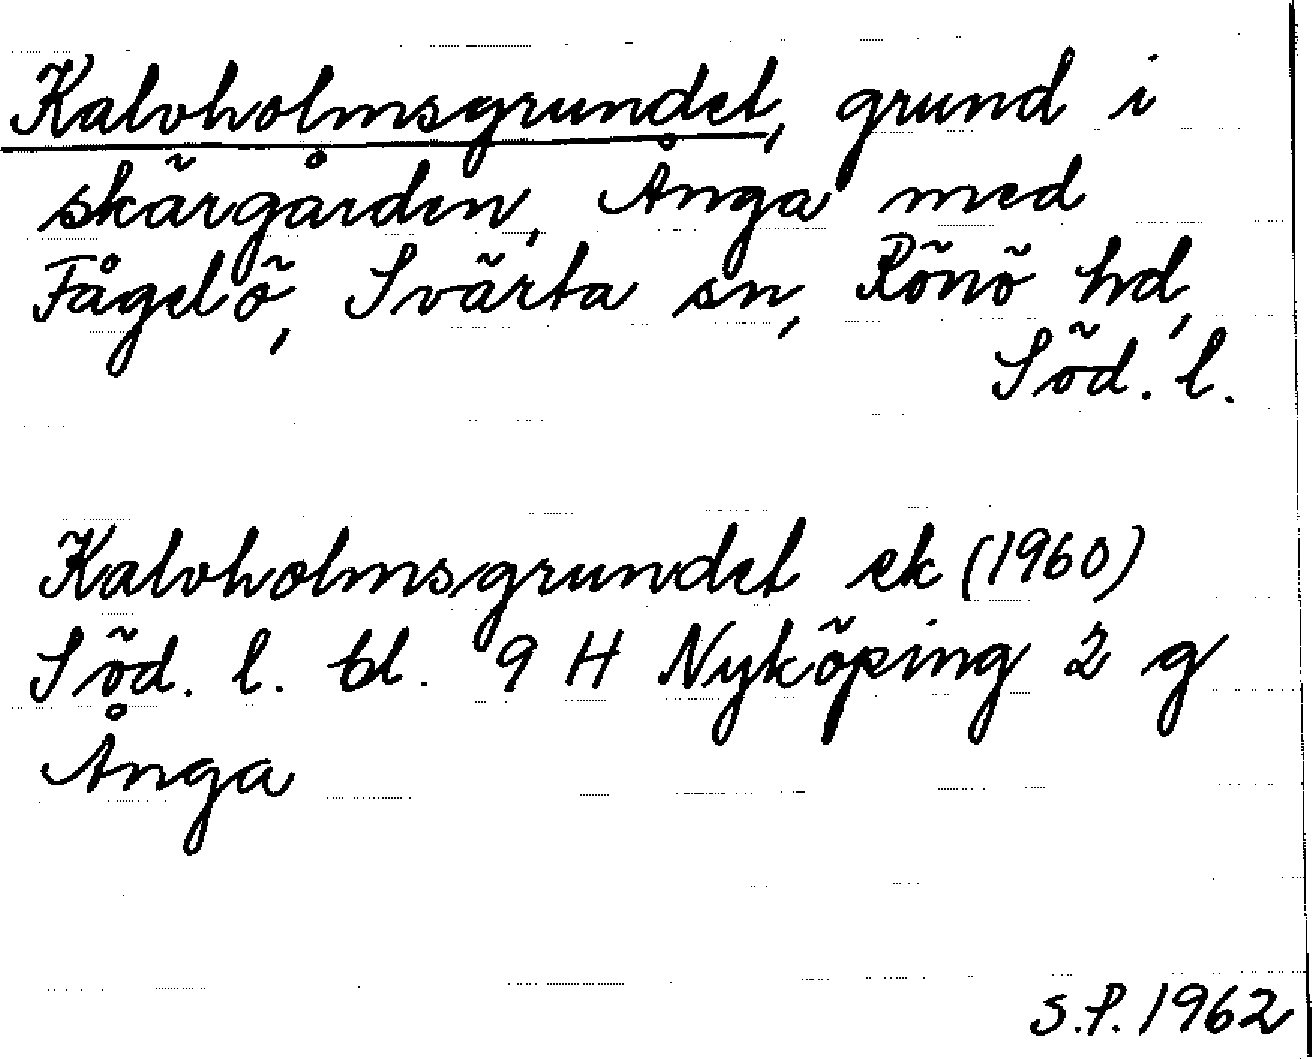 Kalvholmsgrundet, grund i
skärgården, Ånga med
Fågelö, Svärta sn, Rönö hd,
Söd. l.
Kalvholmsgrundet ek (1960)
Söd. l. bl. 9 H Nyköping 2 g
Ånga
S.P. 1962